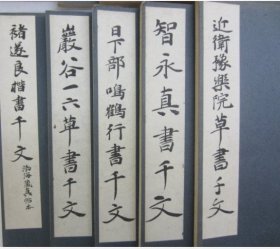 近衛豫樂院草書千文
智永真書千文
日下部鳴鶴行書千文
巖谷一六草書千文
褚遂良楷書千文
渤海藏真帖本